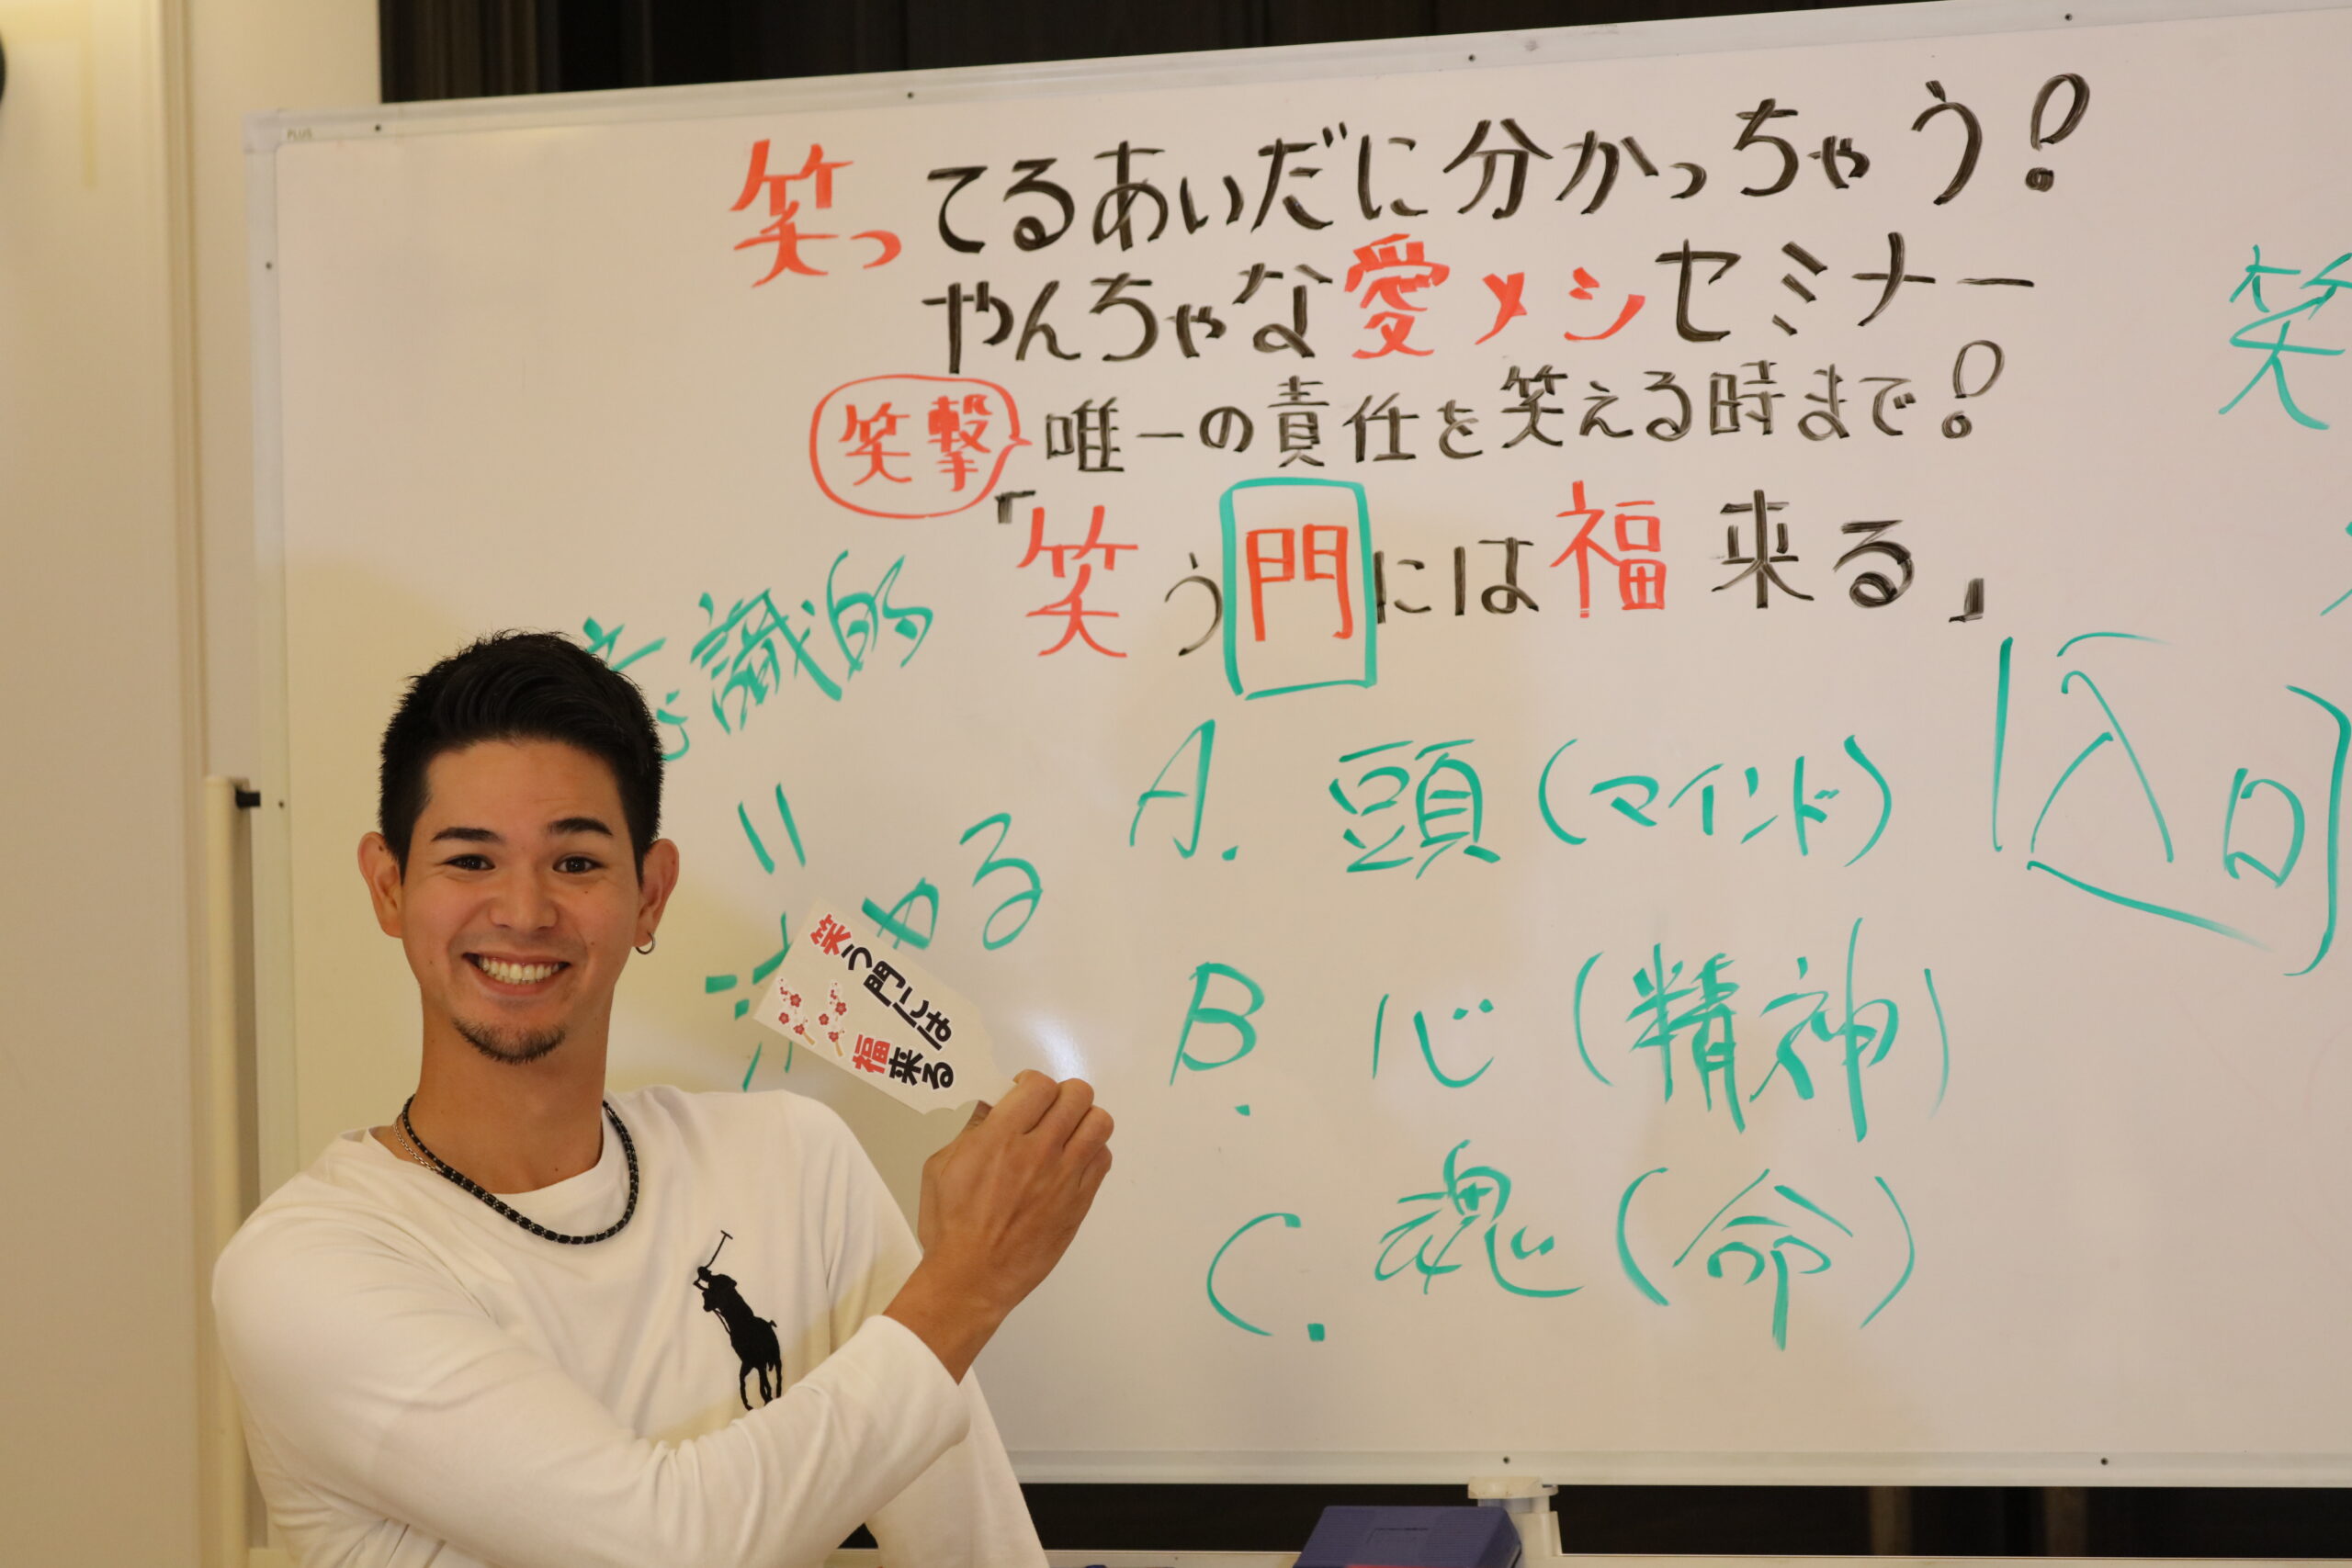 PLUS
笑ってるあいだに分かっちゃう!
やんちゃな愛メシセミナー
笑撃 唯一の責任を笑える時まで!
「笑う門には福来る」
笑
識的
=
やる
A. 頭(マインド)
入口
B. 心(精神)
C. 魂(命)
笑う門には
福来る